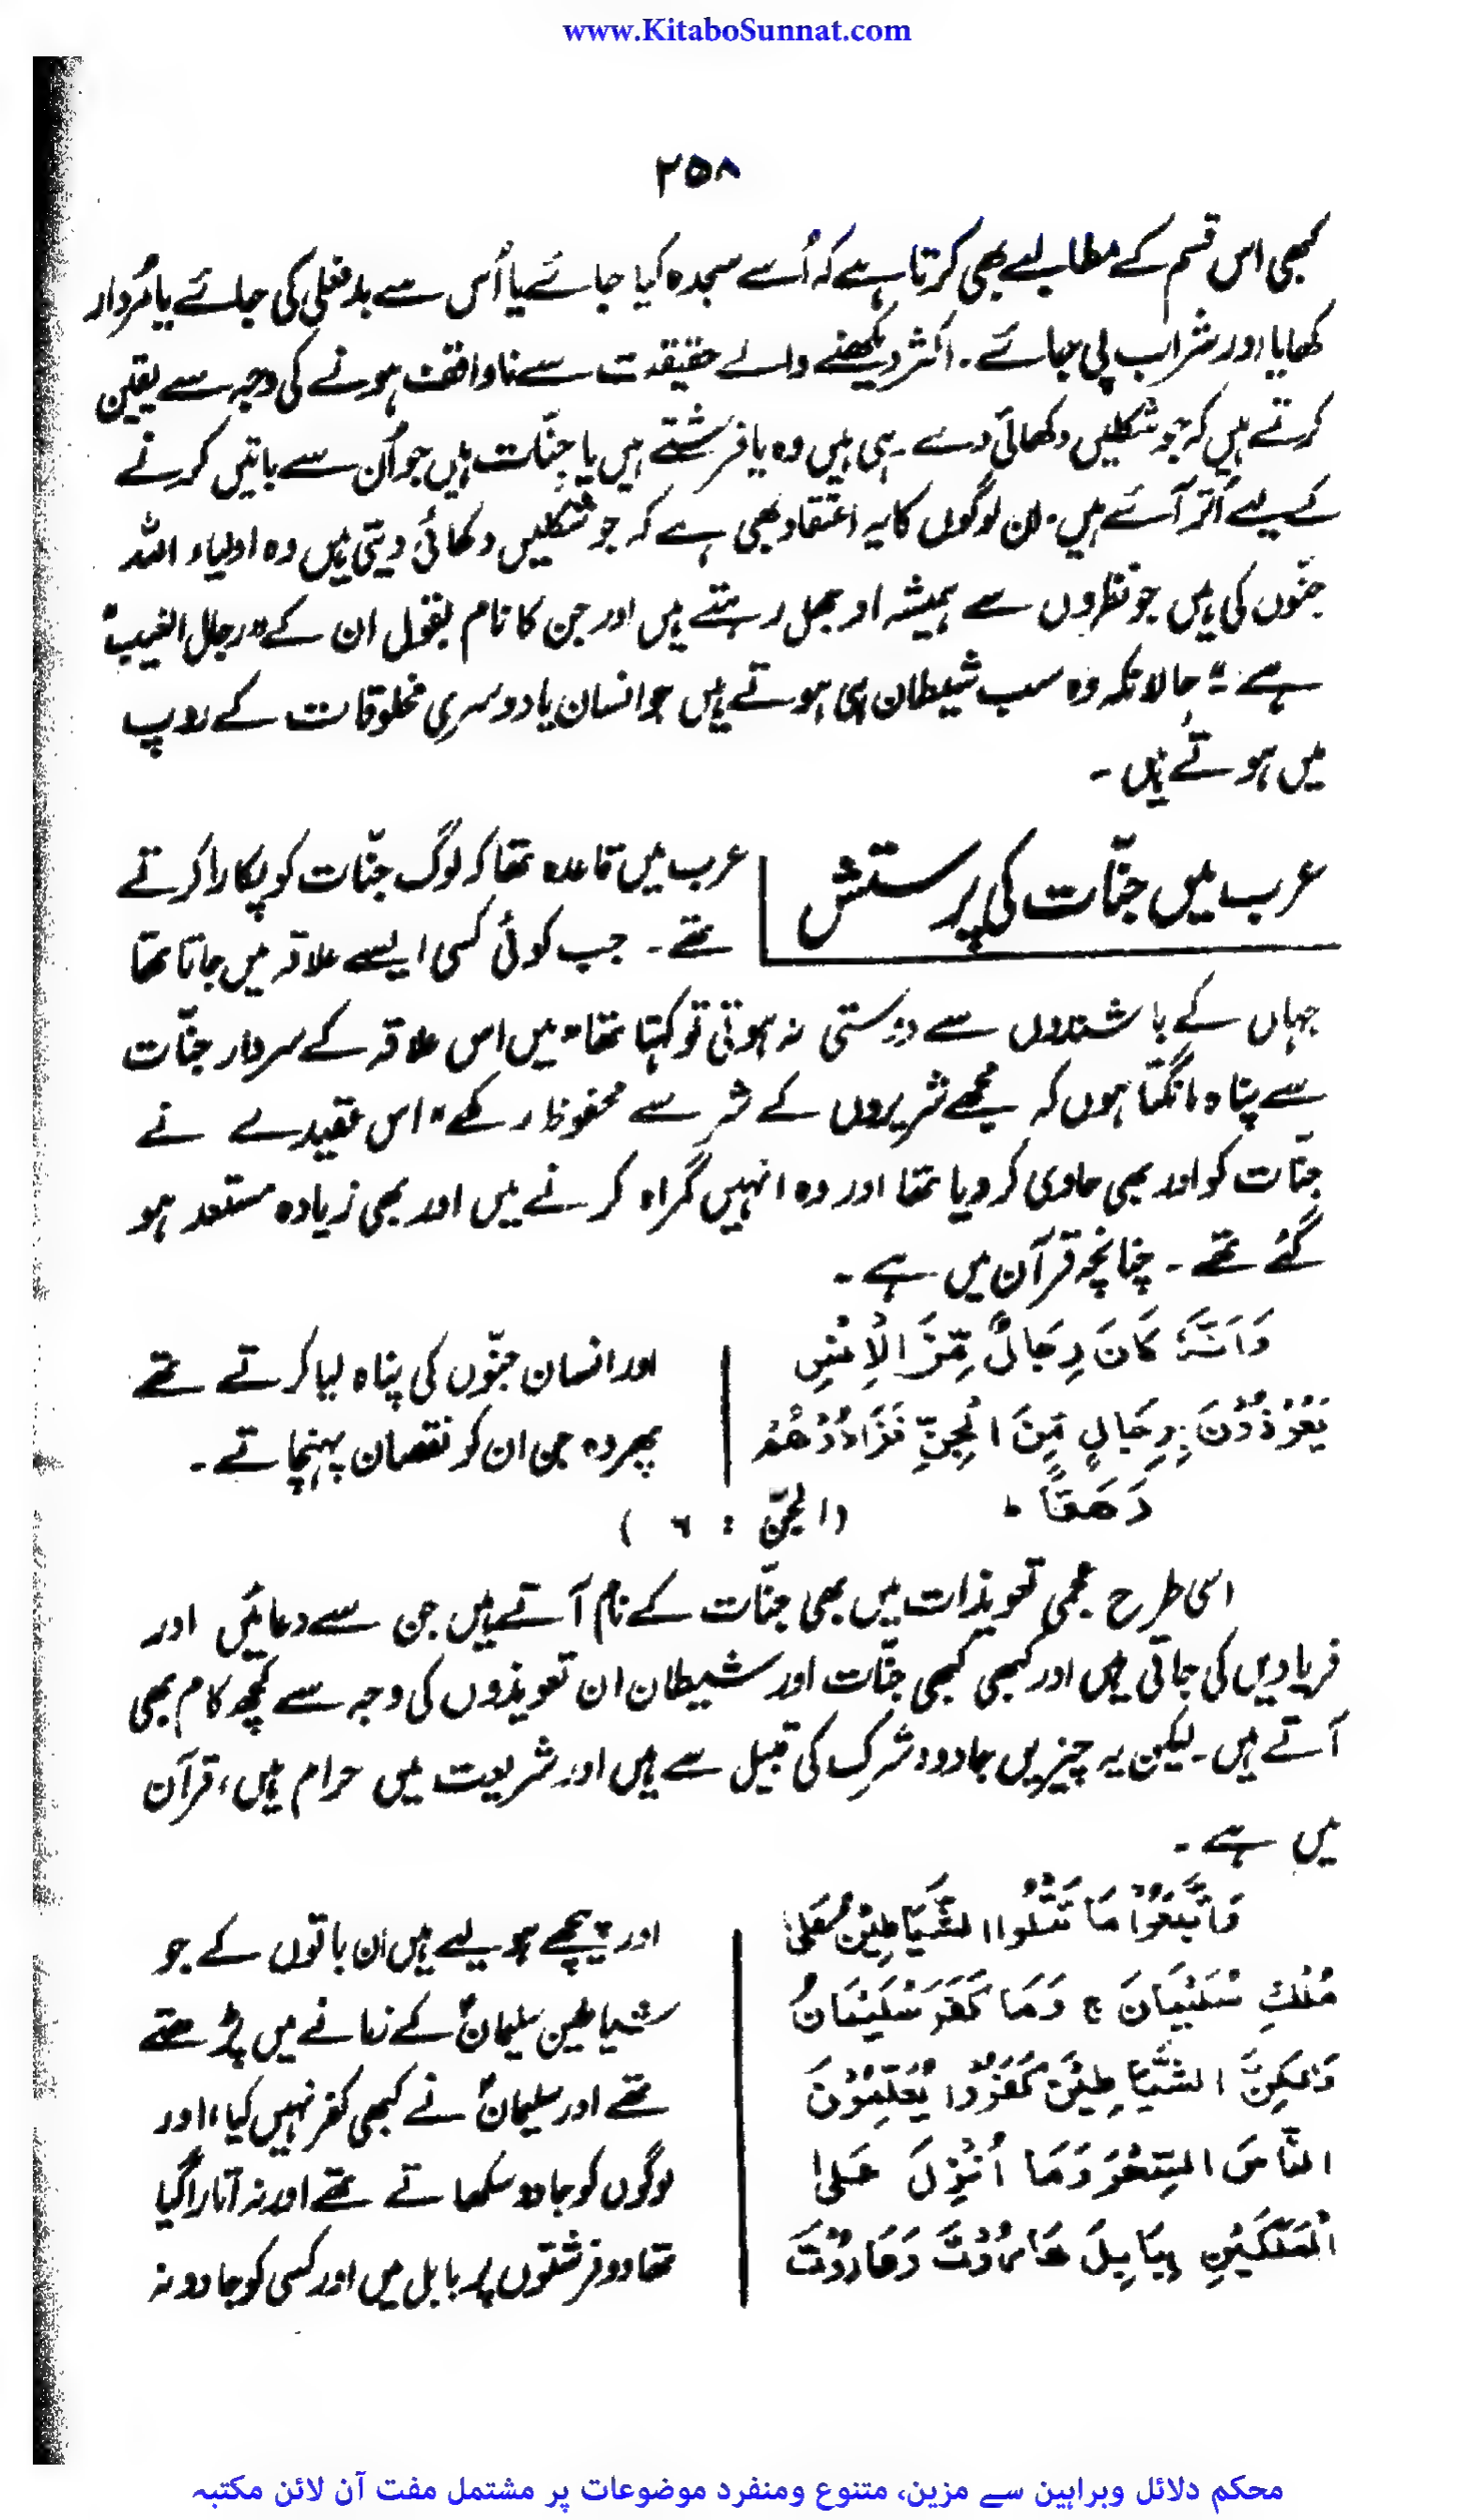 www.KitaboSunnat.com
۲۵۸
کبھی اس قسم کے مطالبے بھی کرتا ہے کہ اُسے سجدہ کیا جائے یا اُس سے بدفعلی کی جائے یا مُردار
کھایا اور شراب پی جائے۔ اکثر دیکھنے والے حقیقت سے ناواقف ہونے کی وجہ سے یقین
کرتے ہیں کہ جو شکلیں دکھائی دے رہی ہیں وہ یا فرشتے ہیں یا جنّات ہیں جو اُن سے باتیں کرنے
کے لیے اُتر آئے ہیں۔ ان لوگوں کا یہ اعتقاد بھی ہے کہ جو شکلیں دکھائی دیتی ہیں وہ اولیاء اللہ
جنّوں کی ہیں جو نظروں سے ہمیشہ اوجھل رہتے ہیں اور جن کا نام بقول ان کے "رجال الغیب"
ہے۔" حالانکہ وہ سب شیطان ہی ہوتے ہیں جو انسان یا دوسری مخلوقات کے روپ
میں ہوتے ہیں۔
عرب میں جنّات کی پرستش
عرب میں قاعدہ تھا کہ لوگ جنّات کو پکارا کرتے
تھے۔ جب کوئی کسی ایسے علاقہ میں جاتا تھا
جہاں کے باشندوں سے دوستی نہ ہوتی تو کہتا تھا "میں اس علاقہ کے سردار جنّات
سے پناہ مانگتا ہوں کہ مجھے شریروں کے شر سے محفوظ رکھے" اس عقیدے نے
جنّات کو اور بھی حاوی کر دیا تھا اور وہ انہیں گمراہ کرنے میں اور بھی زیادہ مستعد ہو
گئے تھے۔ چنانچہ قرآن میں ہے۔
وَاَنَّهٗ كَانَ رِجَالٌ مِّنَ الْاِنْسِ
يَعُوْذُوْنَ بِرِجَالٍ مِّنَ الْجِنِّ فَزَادُوْهُمْ
رَهَقًا ط
(الجنّ : ٦)
اور انسان جنّوں کی پناہ لیا کرتے تھے
پھر وہ جن ان کو نقصان پہنچاتے۔
اسی طرح عجمی تعویذات میں بھی جنّات کے نام آتے ہیں جن سے دعائیں اور
فریادیں کی جاتی ہیں اور کبھی کبھی جنّات اور شیطان ان تعویذوں کی وجہ سے کچھ کام بھی
آتے ہیں۔ لیکن یہ چیزیں جادو، شرک کی قبیل سے ہیں اور شریعت میں حرام ہیں، قرآن
میں ہے۔
وَاتَّبَعُوْا مَا تَتْلُوا الشَّيَاطِيْنُ عَلٰى
مُلْكِ سُلَيْمَانَ ج وَمَا كَفَرَ سُلَيْمَانُ
وَلٰكِنَّ الشَّيَاطِيْنَ كَفَرُوْا يُعَلِّمُوْنَ
النَّاسَ السِّحْرَ وَمَا اُنْزِلَ عَلَى
الْمَلَكَيْنِ بِبَابِلَ هَارُوْتَ وَمَارُوْتَ
اور پیچھے ہو لیے ہیں ان باتوں کے جو
شیاطین سلیمانؑ کے زمانے میں پڑھتے
تھے اور سلیمانؑ نے کبھی کفر نہیں کیا، اور
لوگوں کو جادو سکھاتے تھے اور نہ اتارا گیا
تھا دو فرشتوں پر بابل میں اور کسی کو جادو نہ
محکم دلائل وبراہین سے مزین، متنوع ومنفرد موضوعات پر مشتمل مفت آن لائن مکتبہ